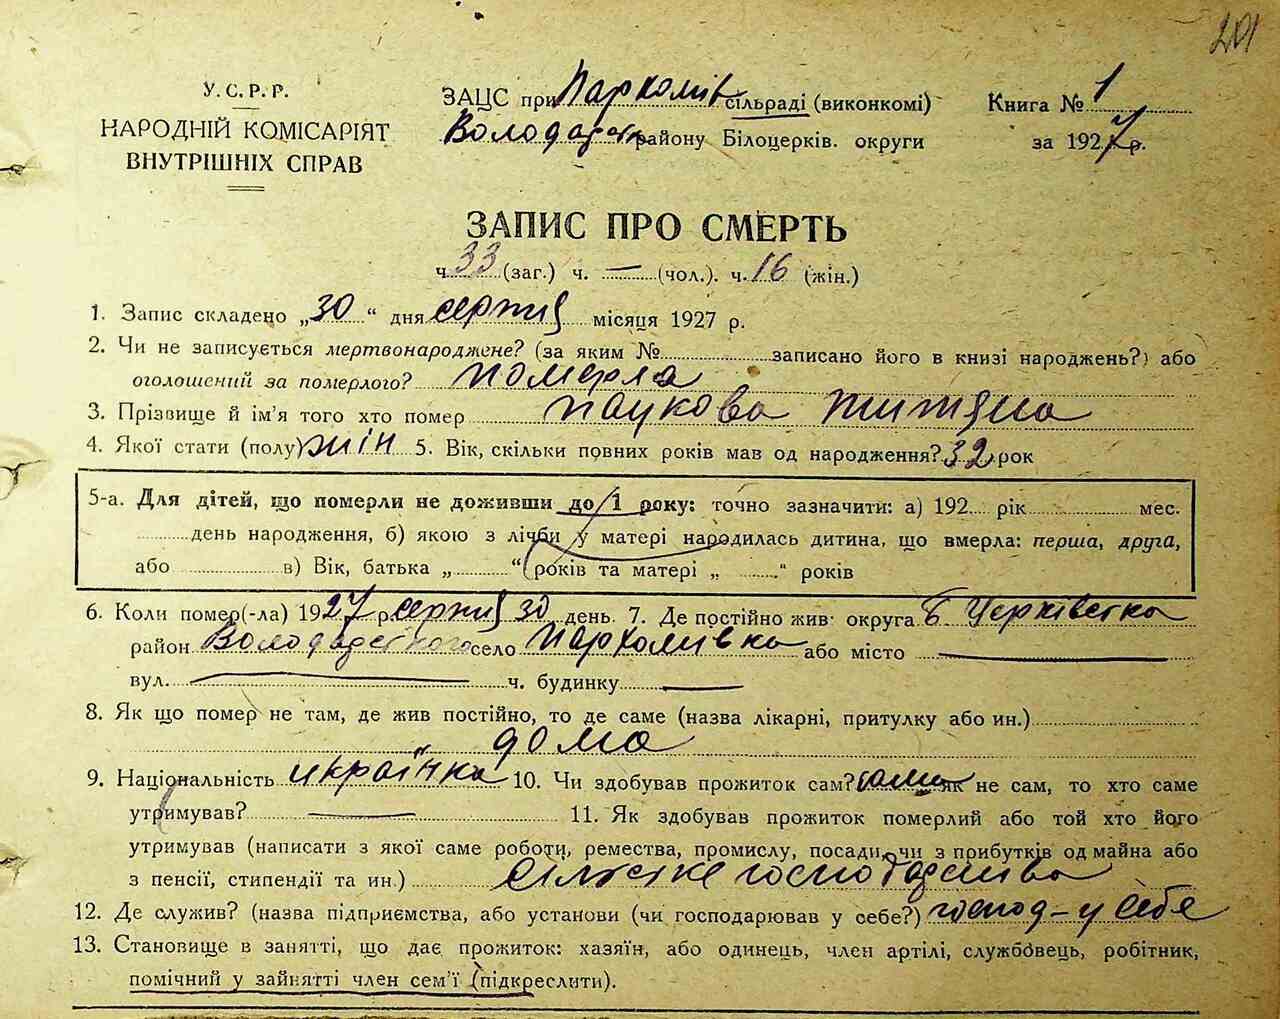 201
У.С.Р.Р.
НАРОДНІЙ КОМІСАРІЯТ
ВНУТРІШНІХ СПРАВ
ЗАЦС при Пархомів сільраді (виконкомі)
Володарськ району Білоцерків. округи
Книга № 1
за 1927 р.
ЗАПИС ПРО СМЕРТЬ
ч. 33 (заг.) ч. — (чол.). ч. 16 (жін.)
1. Запис складено „30“ дня серпня місяця 1927 р.
2. Чи не записується мертвонароджене? (за яким № записано його в книзі народжень?) або
оголошений за померлого? померла
3. Прізвище й ім'я того хто помер Паукова
4. Якої стати (полу) жін 5. Вік, скільки повних років мав од народження? 32 рок
5-а. Для дітей, що померли не доживши до 1 року: точно зазначити: а) 192 рік мес.
день народження, б) якою з лічби у матері народилась дитина, що вмерла: перша, друга,
або в) Вік, батька „ “ років та матері „ “ років
6. Коли помер(-ла) 1927 р. серпня 30 день. 7. Де постійно жив округа Б Церківська
район Володарського село Пархомивка або місто —
вул. — ч. будинку —
8. Як що помер не там, де жив постійно, то де саме (назва лікарні, притулку або ин.)
дома
9. Національність украінка 10. Чи здобував прожиток сам? сама як не сам, то хто саме
утримував? — 11. Як здобував прожиток померлий або той хто його
утримував (написати з якої саме роботи, ремества, промислу, посади, чи з прибутків од майна або
з пенсії, стипендії та ин.) сільське господарства
12. Де служив? (назва підприємства, або установи (чи господарював у себе?) господ-у себе
13. Становище в занятті, що дає прожиток: хазяїн, або одинець, член артілі, службовець, робітник,
помічний у зайнятті член сем'ї (підкреслити).